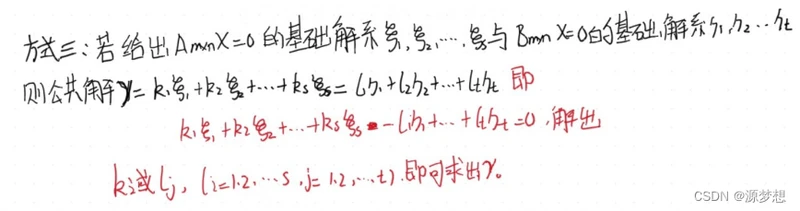 方式三:若给出AmxnX=0的基础解系ξ1,ξ2,…,ξs与BmxnX=0的基础解系η1,η2…ηt
则公共解γ=k1ξ1+k2ξ2+…+ksξs=l1η1+l2η2+…+ltηt 即
k1ξ1+k2ξ2+…+ksξs-l1η1+…+ltηt=0,解出
ki或lj,(i=1.2,…s,j=1.2,…t).即可求出γ。
CSDN @源梦想